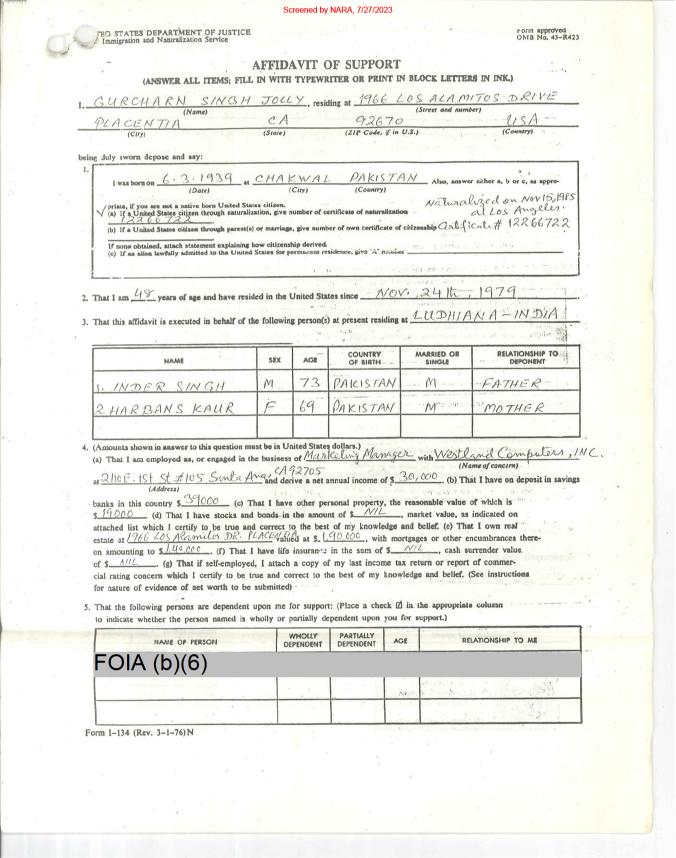 Screened by NARA, 7/27/2023
STATES DEPARTMENT OF JUSTICE
Immigration and Naturalization Service
Form approved
OMB No. 43-R423
AFFIDAVIT OF SUPPORT
(ANSWER ALL ITEMS; FILL IN WITH TYPEWRITER OR PRINT IN BLOCK LETTERS IN INK.)
1. GURCHARN SINGH JOLLY, residing at 1966 LOS ALAMITOS DRIVE
(Name) (Street and number)
PLACENTIA CA 92670 USA
(City) (State) (ZIP Code, if in U.S.) (Country)
being duly sworn depose and say:
1.
I was born on 6.3.1939 at CHAKWAL PAKISTAN Also, answer either a, b or c, as appro-
(Date) (City) (Country)
priate, if you are not a native born United States citizen. Naturalized on Nov 15, 1985
(a) If a United States citizen through naturalization, give number of certificate of naturalization at Los Angeles.
12266722
(b) If a United States citizen through parent(s) or marriage, give number of own certificate of citizenship Certificate # 12266722
If none obtained, attach statement explaining how citizenship derived.
(c) If an alien lawfully admitted to the United States for permanent residence, give "A" number
2. That I am 48 years of age and have resided in the United States since NOV. 24th, 1979
3. That this affidavit is executed in behalf of the following person(s) at present residing at LUDHIANA-INDIA
NAME SEX AGE COUNTRY OF BIRTH MARRIED OR SINGLE RELATIONSHIP TO DEPONENT
1. INDER SINGH M 73 PAKISTAN M FATHER
2 HARBANS KAUR F 69 PAKISTAN M MOTHER
4. (Amounts shown in answer to this question must be in United States dollars.)
(a) That I am employed as, or engaged in the business of Marketing Manager with Westland Computers, INC.
(Name of concern)
at 2110 E. 1st St #105 Santa Ana, CA 92705 and derive a net annual income of $ 30,000 (b) That I have on deposit in savings
(Address)
banks in this country $ 39000 (c) That I have other personal property, the reasonable value of which is
$ 19000 (d) That I have stocks and bonds in the amount of $ NIL, market value, as indicated on
attached list which I certify to be true and correct to the best of my knowledge and belief. (e) That I own real
estate at 1966 LOS Alamitos DR. PLACENTIA valued at $ 190,000, with mortgages or other encumbrances there-
on amounting to $ 140,000. (f) That I have life insurance in the sum of $ NIL, cash surrender value
of $ NIL (g) That if self-employed, I attach a copy of my last income tax return or report of commer-
cial rating concern which I certify to be true and correct to the best of my knowledge and belief. (See instructions
for nature of evidence of net worth to be submitted)
5. That the following persons are dependent upon me for support: (Place a check ☑ in the appropriate column
to indicate whether the person named is wholly or partially dependent upon you for support.)
NAME OF PERSON WHOLLY DEPENDENT PARTIALLY DEPENDENT AGE RELATIONSHIP TO ME
FOIA (b)(6)
Form I-134 (Rev. 3-1-76)N